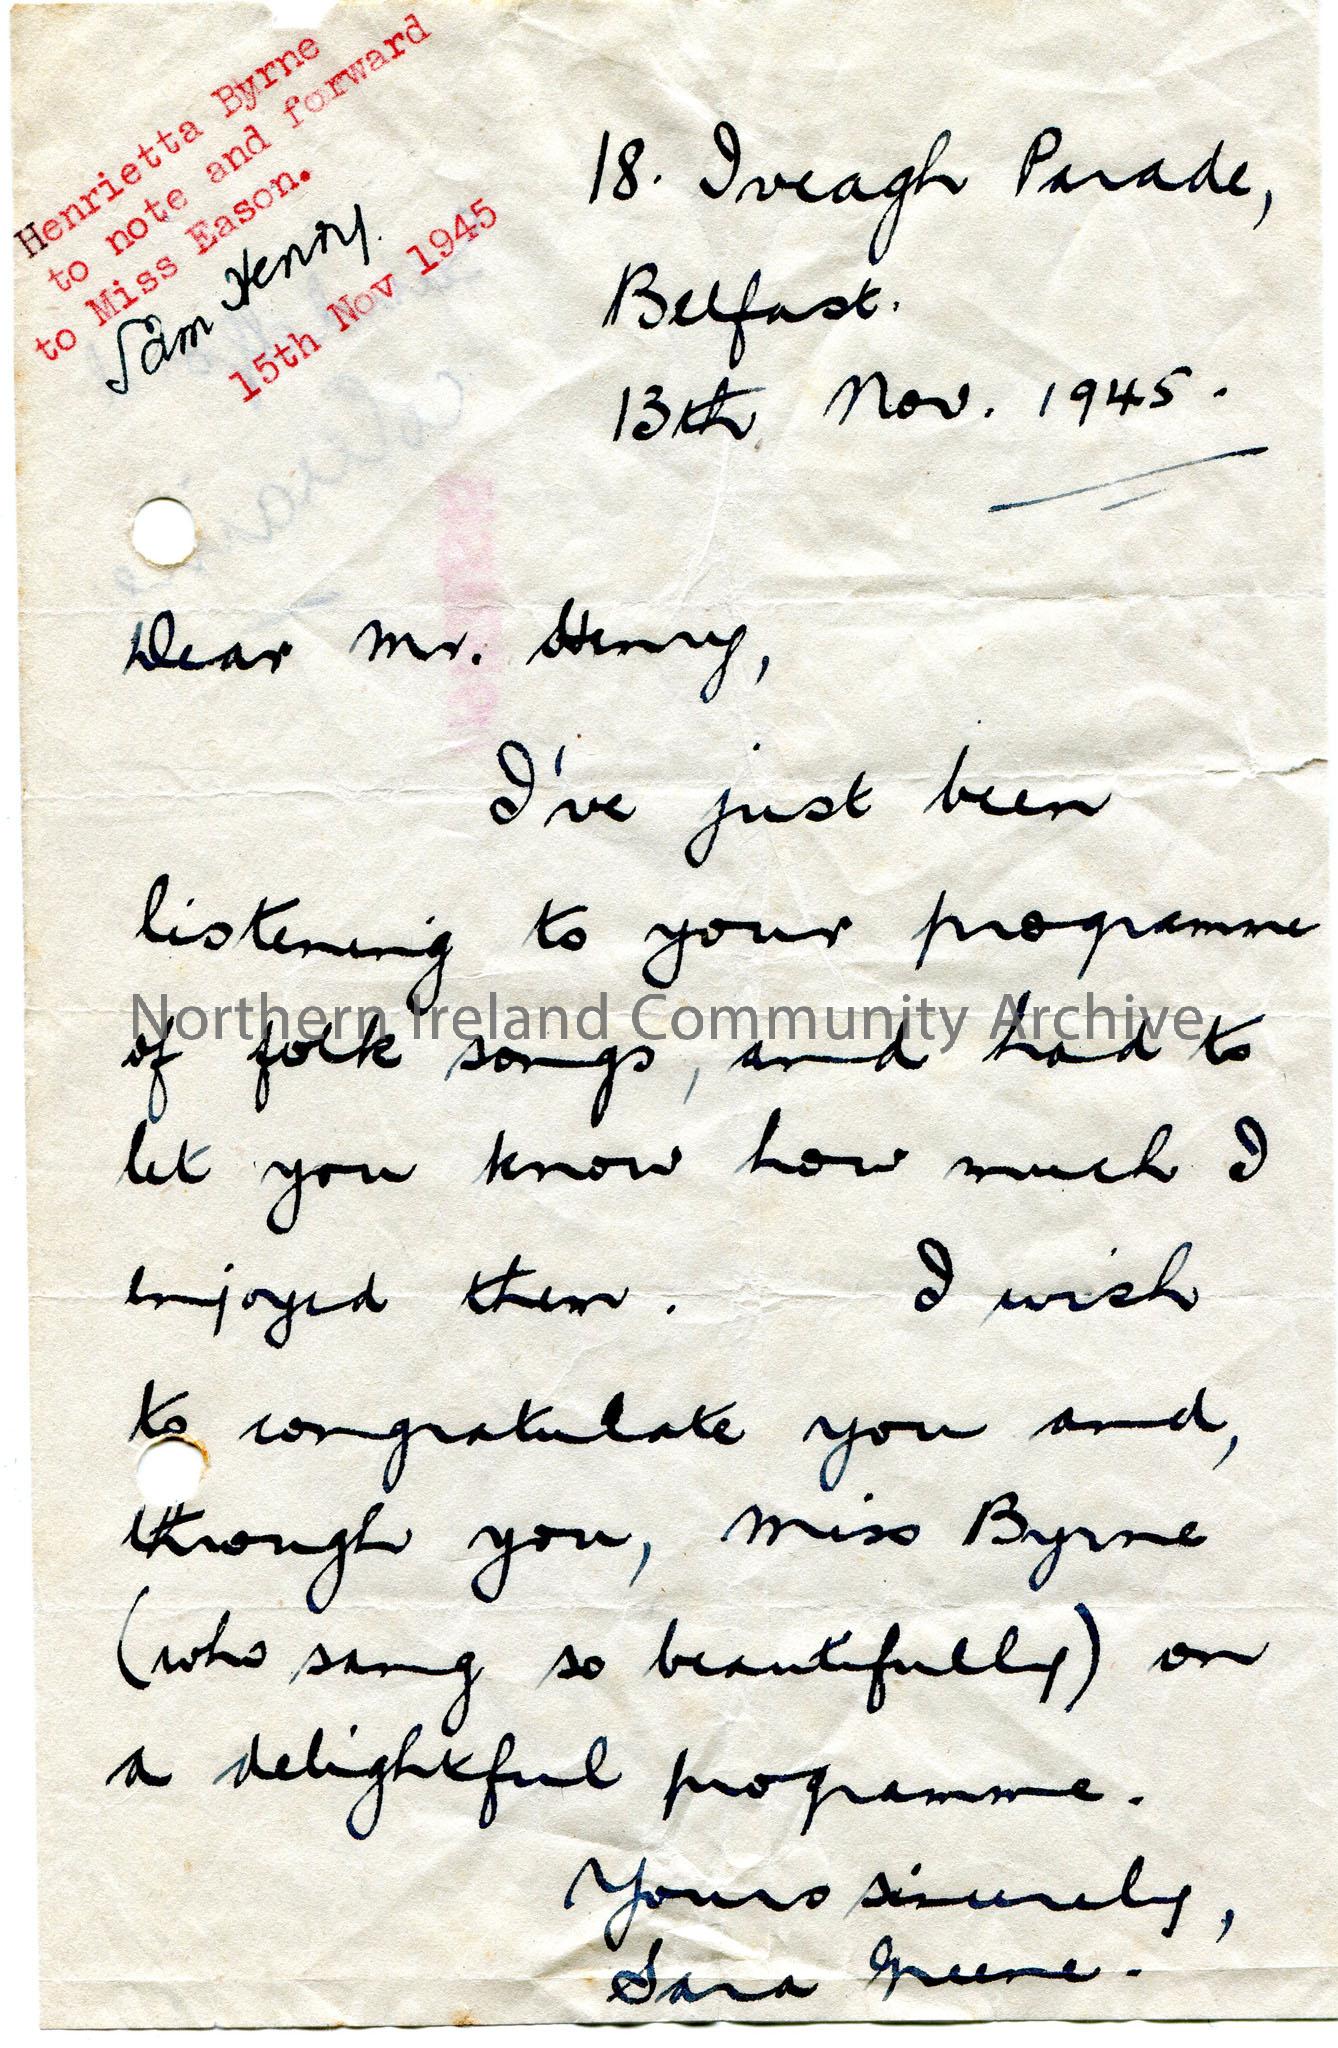 Henrietta Byrne
to note and forward
to Miss Eason.
Sam Henry.
15th Nov 1945
18. Iveagh Parade,
Belfast.
13th Nov. 1945.
Dear Mr. Henry,
I've just been
listening to your programme
Northern Ireland Community Archive
of folk songs, and had to
let you know how much I
enjoyed them. I wish
to congratulate you and,
through you, Miss Byrne
(who sang so beautifully) on
a delightful programme.
Yours sincerely,
Sara Greene.